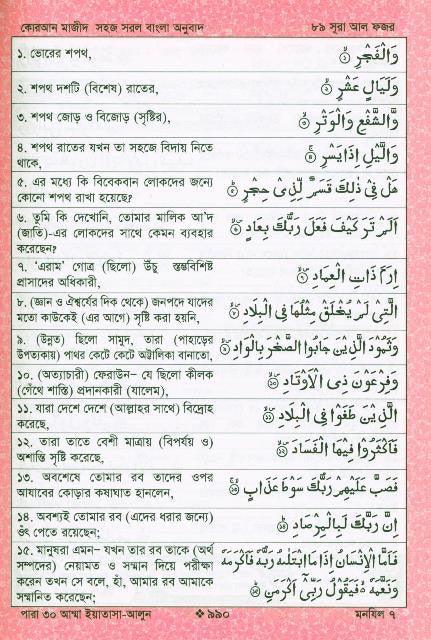 কোরআন মাজীদ সহজ সরল বাংলা অনুবাদ
৮৯ সূরা আল ফজর
১. ভোরের শপথ,
وَالْفَجْرِ ۙ﴿١﴾
২. শপথ দশটি (বিশেষ) রাতের,
وَلَيَالٍ عَشْرٍ ۙ﴿٢﴾
৩. শপথ জোড় ও বিজোড় (সৃষ্টির),
وَّالشَّفْعِ وَالْوَتْرِ ۙ﴿٣﴾
৪. শপথ রাতের যখন তা সহজে বিদায় নিতে
থাকে,
وَالَّيْلِ اِذَا يَسْرِ ۚ﴿٤﴾
৫. এর মধ্যে কি বিবেকবান লোকদের জন্যে
কোনো শপথ রাখা হয়েছে?
هَلْ فِىْ ذٰلِكَ قَسَمٌ لِّذِىْ حِجْرٍ ۗ﴿٥﴾
৬. তুমি কি দেখোনি, তোমার মালিক আ'দ
(জাতি)-এর লোকদের সাথে কেমন ব্যবহার
করেছেন?
اَلَمْ تَرَ كَيْفَ فَعَلَ رَبُّكَ بِعَادٍ ۙ﴿٦﴾
৭. ‘এরাম’ গোত্র (ছিলো) উঁচু স্তম্ভবিশিষ্ট
প্রাসাদের অধিকারী,
اِرَمَ ذَاتِ الْعِمَادِ ۙ﴿٧﴾
৮. (জ্ঞান ও ঐশ্বর্যের দিক থেকে) জনপদে যাদের
মতো কাউকেই (এর আগে) সৃষ্টি করা হয়নি,
الَّتِىْ لَمْ يُخْلَقْ مِثْلُهَا فِى الْبِلَادِ ۙ﴿٨﴾
৯. (উন্নত) ছিলো সামুদ, তারা (পাহাড়ের
উপত্যকায়) পাথর কেটে কেটে অট্টালিকা বানাতো,
وَثَمُوْدَ الَّذِيْنَ جَابُوا الصَّخْرَ بِالْوَادِ ۙ﴿٩﴾
১০. (অত্যাচারী) ফেরাউন– যে ছিলো কীলক
(গেঁথে শাস্তি) প্রদানকারী (যালেম),
وَفِرْعَوْنَ ذِى الْاَوْتَادِ ۙ﴿١٠﴾
১১. যারা দেশে দেশে (আল্লাহর সাথে) বিদ্রোহ
করেছে,
الَّذِيْنَ طَغَوْا فِى الْبِلَادِ ۙ﴿١١﴾
১২. তারা তাতে বেশী মাত্রায় (বিপর্যয় ও)
অশান্তি সৃষ্টি করেছে,
فَاَكْثَرُوْا فِيْهَا الْفَسَادَ ۙ﴿١٢﴾
১৩. অবশেষে তোমার রব তাদের ওপর
আযাবের কোড়ার কষাঘাত হানলেন,
فَصَبَّ عَلَيْهِمْ رَبُّكَ سَوْطَ عَذَابٍ ۙ﴿١٣﴾
১৪. অবশ্যই তোমার রব (এদের ধরার জন্যে)
ওঁৎ পেতে রয়েছেন;
اِنَّ رَبَّكَ لَبِالْمِرْصَادِ ۗ﴿١٤﴾
১৫. মানুষরা এমন– যখন তার রব তাকে (অর্থ
সম্পদের) নেয়ামত ও সম্মান দিয়ে পরীক্ষা
করেন তখন সে বলে, হাঁ, আমার রব আমাকে
সম্মানিত করেছেন;
فَاَمَّا الْاِنْسَانُ اِذَا مَا ابْتَلٰىهُ رَبُّهٗ فَاَكْرَمَهٗ
وَنَعَّمَهٗ ۙ فَيَقُوْلُ رَبِّىْٓ اَكْرَمَنِ ۗ﴿١٥﴾
পারা ৩০ আম্মা ইয়াতাসা-আলুন
❖ ৯৯০
মনযিল ৭